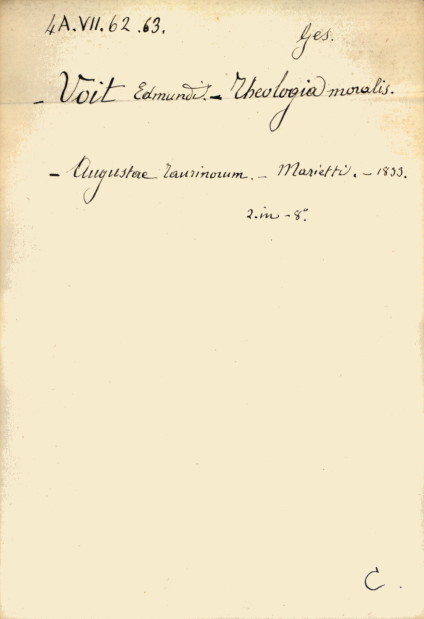 4A.VII.62.63.
Ges.
- Voit Edmundi. - Theologia moralis.
- Augustae Taurinorum. - Marietti. - 1833.
2. in - 8°.
C.